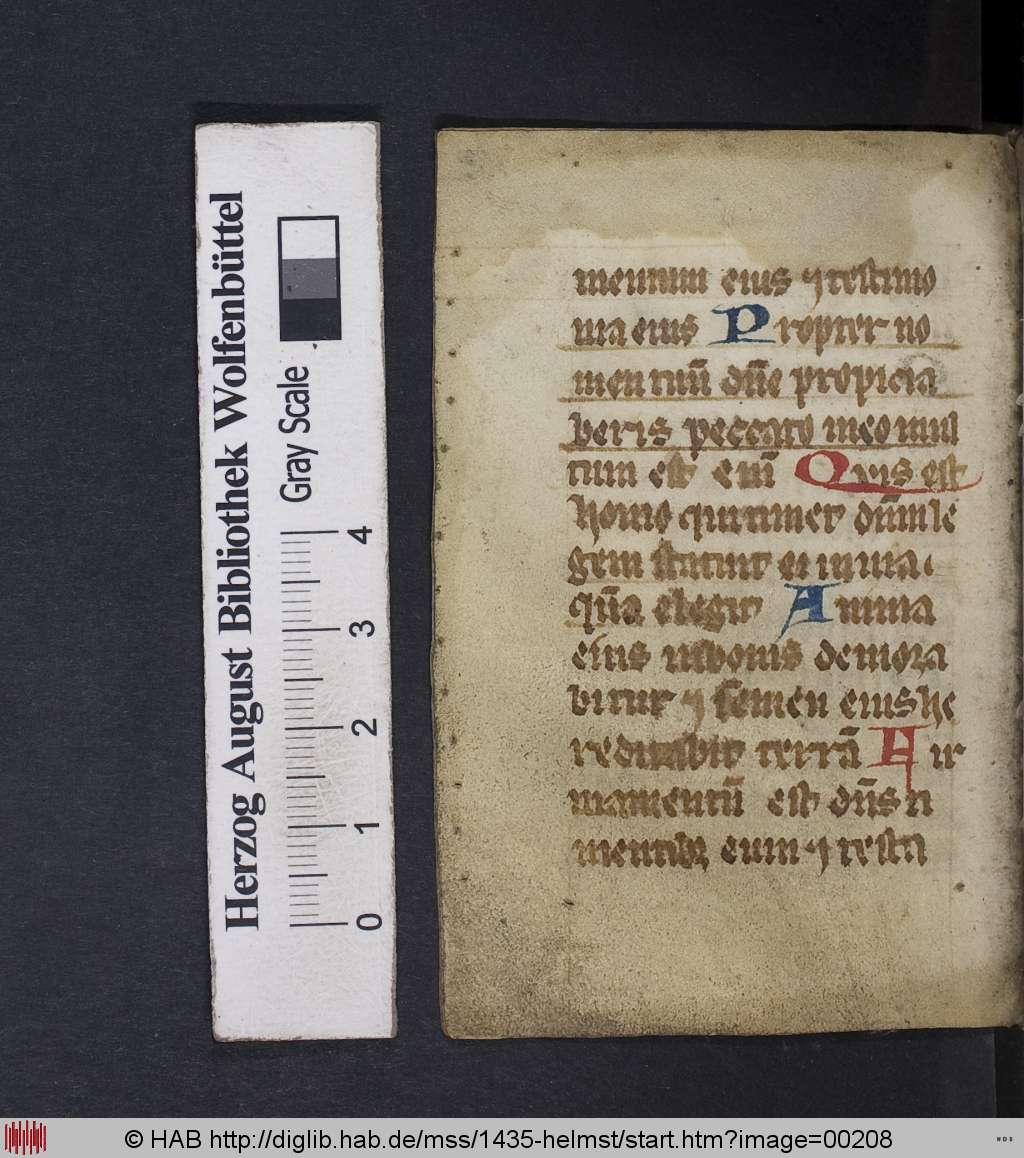 Herzog August Bibliothek Wolfenbüttel
Gray Scale
0 1 2 3 4
mentum eius ⁊ testimo
nia eius Propter no
men tuū dn̄e propicia
beris peccato meo mul
tum est enī Qvis est
homo qui timet dn̄m le
gem statuit ei in uia
quā elegit Anima
eius in bonis demora
bitur ⁊ semen eius he
reditabit terrā Fir
mamentū est dn̄s ti
mentibꝫ eum ⁊ testa
© HAB http://diglib.hab.de/mss/1435-helmst/start.htm?image=00208